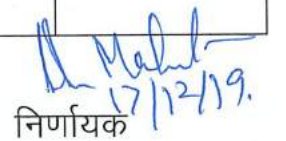 17/12/19.
निर्णायक